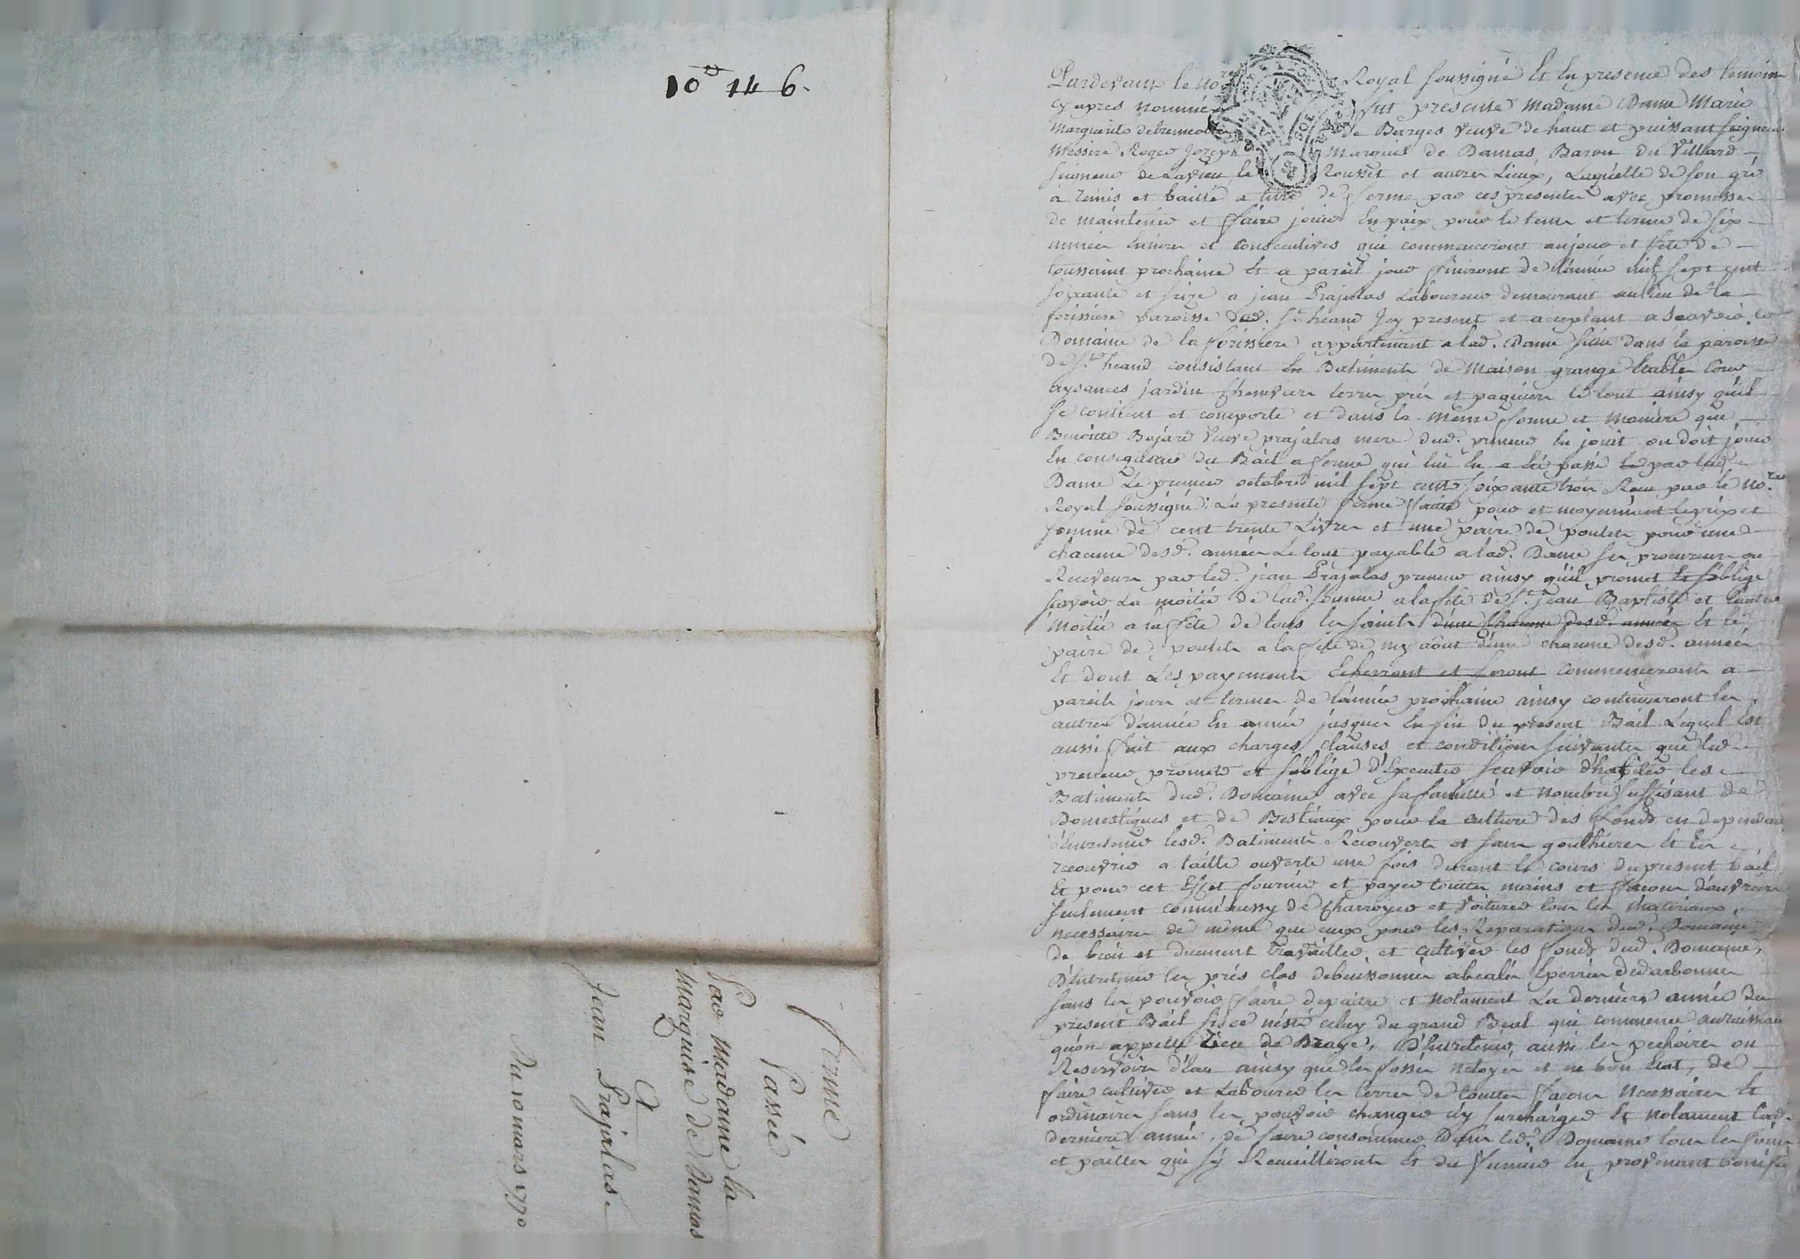 10ᵈ 14 6.
ferme
Passée
Par Madame la
marquise de Damas
A
Jean Prajalas.
Du 10 mars 1770
Pardevant le no.re Royal soussigné Et En presence des temoins
cy apres nommés fut presente Madame Dame Marie
Marguerite de Berges veuve de haut et puissant seigneur
Messire Roger Joseph Marquis de Damas Baron du Villard
seigneur de Lavieu le Rousset et autres Lieux, Laquelle de son gré
a remis et baillé a titre de ferme par ces presentes avec promesse
de maintenir et faire jouir En paix pour le tems et terme de six
années Entieres et consecutives qui commenceront au jour et fete de
toussaint prochaine Et a pareil jour finiront de l'année mil sept cent
soixante et seize a jean Prajalas Laboureur demeurant au lieu de la
forissiere paroisse dud. St heand Jcy present et acceptant a scavoir le
Domaine de la forissiere appartenant a lad. Dame situé dans la paroisse
de St heand consistant En Batiments de Maison grange Etables Cour
aysances jardin Chenevier terres prés et paquiers le tout ainsy qu'il
se contient et comporte et dans la même forme et maniere que
Benoitte Bajard Veuve prajalas mere dud. preneur En jouit ou doit jouir
En consequence du Bail a ferme qui lui En a été passé par lad.
Dame Le premier octobre mil sept cent soixante trois Reçu par le no.re
Royal soussigné. La presente ferme faite pour et moyennant le prix et
somme de cent trente Livres et une paire de poulets pour une
chacune desd. années Le tout payable a lad. Dame ses procureurs ou
Receveurs par led. jean Prajalas preneur ainsy qu'il promet Et s'oblige
scavoir La moitié de lad. somme a la fete de St jean Baptiste et l'autre
Moitié a la fete de tous les saints d'une chacune desd. années Et la
paire de poulets a la fete de my aôust d'une chacune desd. années
Et dont Les payements Echerront et seront commenceront a
pareils jours et termes de l'année prochaine ainsy continueront les
autres d'année En année jusques En fin du present Bail Lequel Est
aussi fait aux charges, clauses et conditions suivantes que led.
preneur promet et s'oblige d'Executer scavoir d'habiter les
Batiments dud. Domaine avec sa famille et nombre suffisant de
Domestiques et de Bestiaux pour la culture des fonds en dependant
d'Entretenir lesd. Batiments Recouverts et sans gouthieres Et les
recouvrir a taille ouverte une fois durant le cours du present bail
Et pour cet Effet fournir et payer toutes mains et facons d'ouvriers
seulement comm'aussy de charroyer et voiturer tous les materiaux
necessaires de même que ceux pour les Reparations dud. Domaine,
de bien et duement travailler et cultiver les fonds dud. Domaine,
D'Entretenir les prés clos debuissonnés
sans les pouvoir faire depaitre et notament La derniere année du
present Bail si ce n'est celuy du grand Béal qui commence
qu'on appelle Lieu de Braye, D'Entretenir aussi les pechoires ou
Reservoirs d'Eau ainsy que les fossés netoyés et en bon Etat, de
faire cultiver et Labourer les terres de toutes facons Necessaires Et
ordinaires sans les pouvoir changer ny surcharger Et notament lad.
derniere année, de faire consommer Dans led. Domaine tous les foins
et pailles qui s'y Recueilliront Et du fumier En provenant